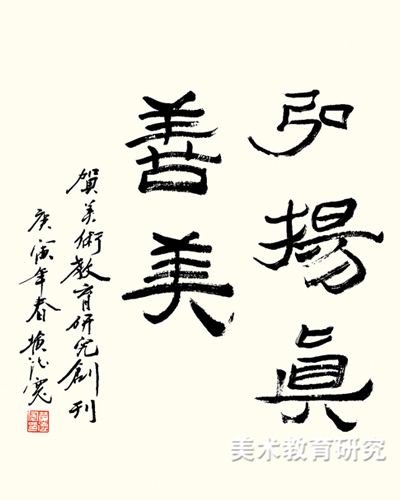 弘揚眞
善美
賀美術教育研究創刊
庚寅年春
美术教育研究